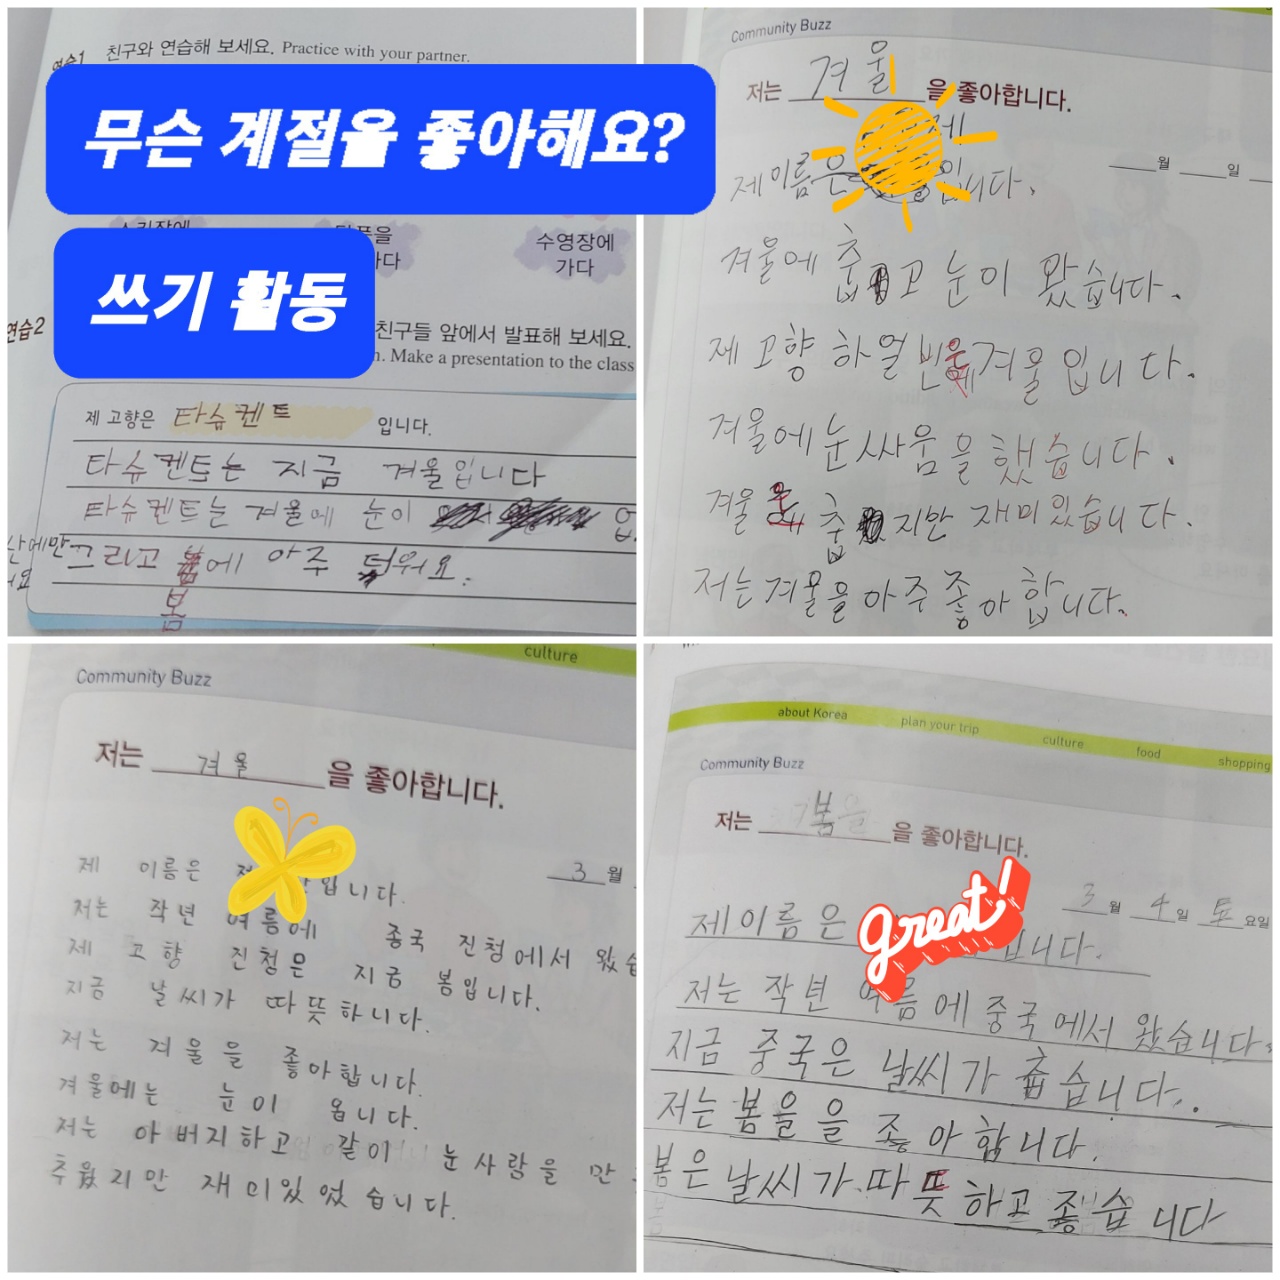 연습1 친구와 연습해 보세요. Practice with your partner.
무슨 계절을 좋아해요?
쓰기 활동
수영장에
가다
연습2 친구들 앞에서 발표해 보세요.
Make a presentation to the class
제 고향은 타슈켄트 입니다.
타슈켄트는 지금 겨울입니다
타슈켄트는 겨울에 눈이
그리고 봄에 아주 더워요.
봄
Community Buzz
저는 겨울을 좋아합니다.
월 일
제 이름은 입니다.
겨울에 춥고 눈이 왔습니다.
제 고향 하얼빈은 겨울입니다.
겨울에 눈싸움을 했습니다.
겨울은 춥지만 재미있습니다.
저는 겨울을 아주 좋아합니다.
culture
Community Buzz
저는 겨울을 좋아합니다.
3월
제 이름은 입니다.
저는 작년 여름에 중국 진청에서 왔습
제 고향 진청은 지금 봄입니다.
지금 날씨가 따뜻하니다.
저는 겨울을 좋아합니다.
겨울에는 눈이 옵니다.
저는 아버지하고 같이 눈사람을 만
추웠지만 재미있었습니다.
about Korea plan your trip culture food shopping
Community Buzz
저는 봄을 좋아합니다.
3월 4일 토요일
great!
제 이름은 입니다.
저는 작년 여름에 중국에서 왔습니다.
지금 중국은 날씨가 춥습니다.
저는 봄을을 좋아합니다.
봄은 날씨가 따뜻하고 좋습니다